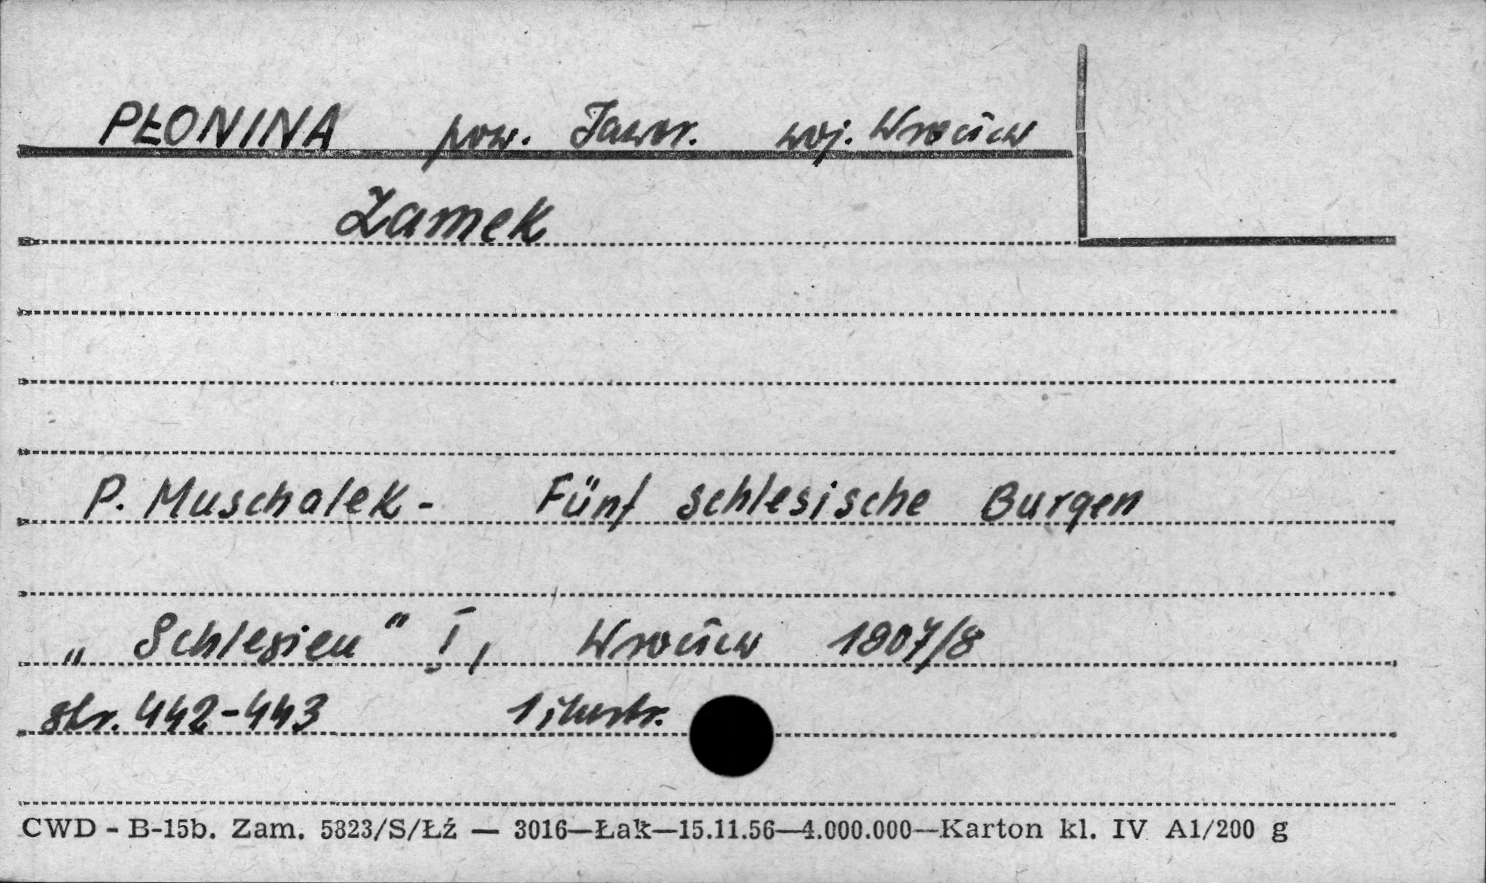 PŁONINA pow. Jawor. woj. Wrocław
Zamek
P. Muschalek - Fünf schlesische Burgen
„Schlesien" I, Wrocław 1907/8
str. 442-443 1 ilustr.
CWD - B-15b. Zam. 5823/S/Łź — 3016—Łak—15.11.56—4.000.000—Karton kl. IV A1/200 g